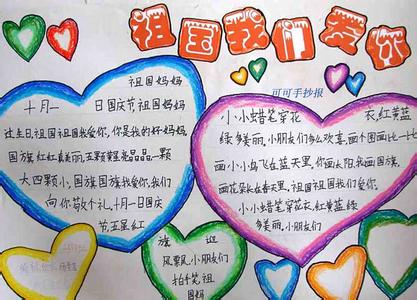 祖国我们爱你
可可手抄报
祖国妈妈
十月一日国庆节祖国妈妈
过生日祖国祖国我爱你,你是我的好妈妈
国旗红红真美丽,五颗黄星亮晶晶一颗
大四颗小,国旗国旗我爱你,我们
向你敬个礼,十月一日国庆
节,五星红
旗迎
风飘,小朋友们
拍手笔祖
国妈
小小蜡笔穿花衣,红黄蓝
绿多美丽,小朋友们多么欢喜,画个图画比一比
画小小鸟飞在蓝天里,你画太阳我画国旗,
画花朵长在春天里,祖国祖国我们爱你,
小小蜡笔穿花衣,红黄蓝绿
多美丽,小朋友们
十月一